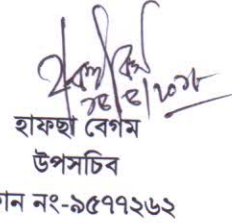 হাফছা বেগম
উপসচিব
ন নং-৯৫৭৭২৬২